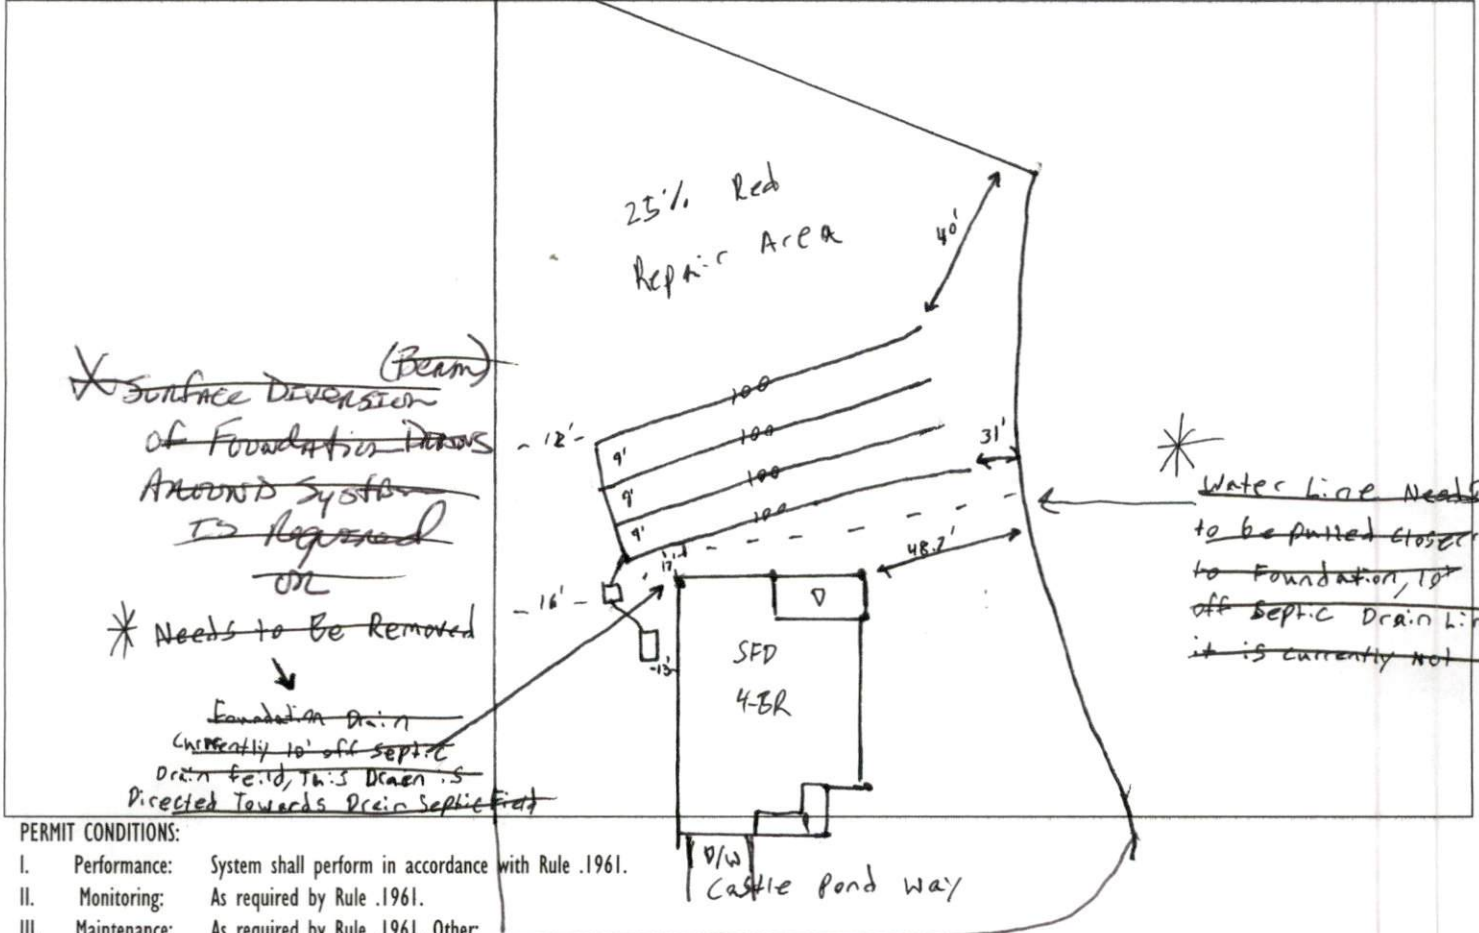 25% Red
Repair Area
40'
(Beam)
Surface Diversion
of Foundation Drains
Around System
Is Required
OR
* Needs to Be Removed
Foundation Drain
Currently 10' off septic
Drain Feild, This Drain is
Directed Towards Drain Septic Field
12'
100
100
100
100
9'
9'
9'
31'
17'
48.2'
16'
13'
SFD
4-BR
D/W
Castle Pond Way
*
Water Line Needs
to be pulled closer
to Foundation, 10'
off Septic Drain Lin
it is currently Not
PERMIT CONDITIONS:
I. Performance: System shall perform in accordance with Rule .1961.
II. Monitoring: As required by Rule .1961.
III. Maintenance: As required by Rule .1961. Other: